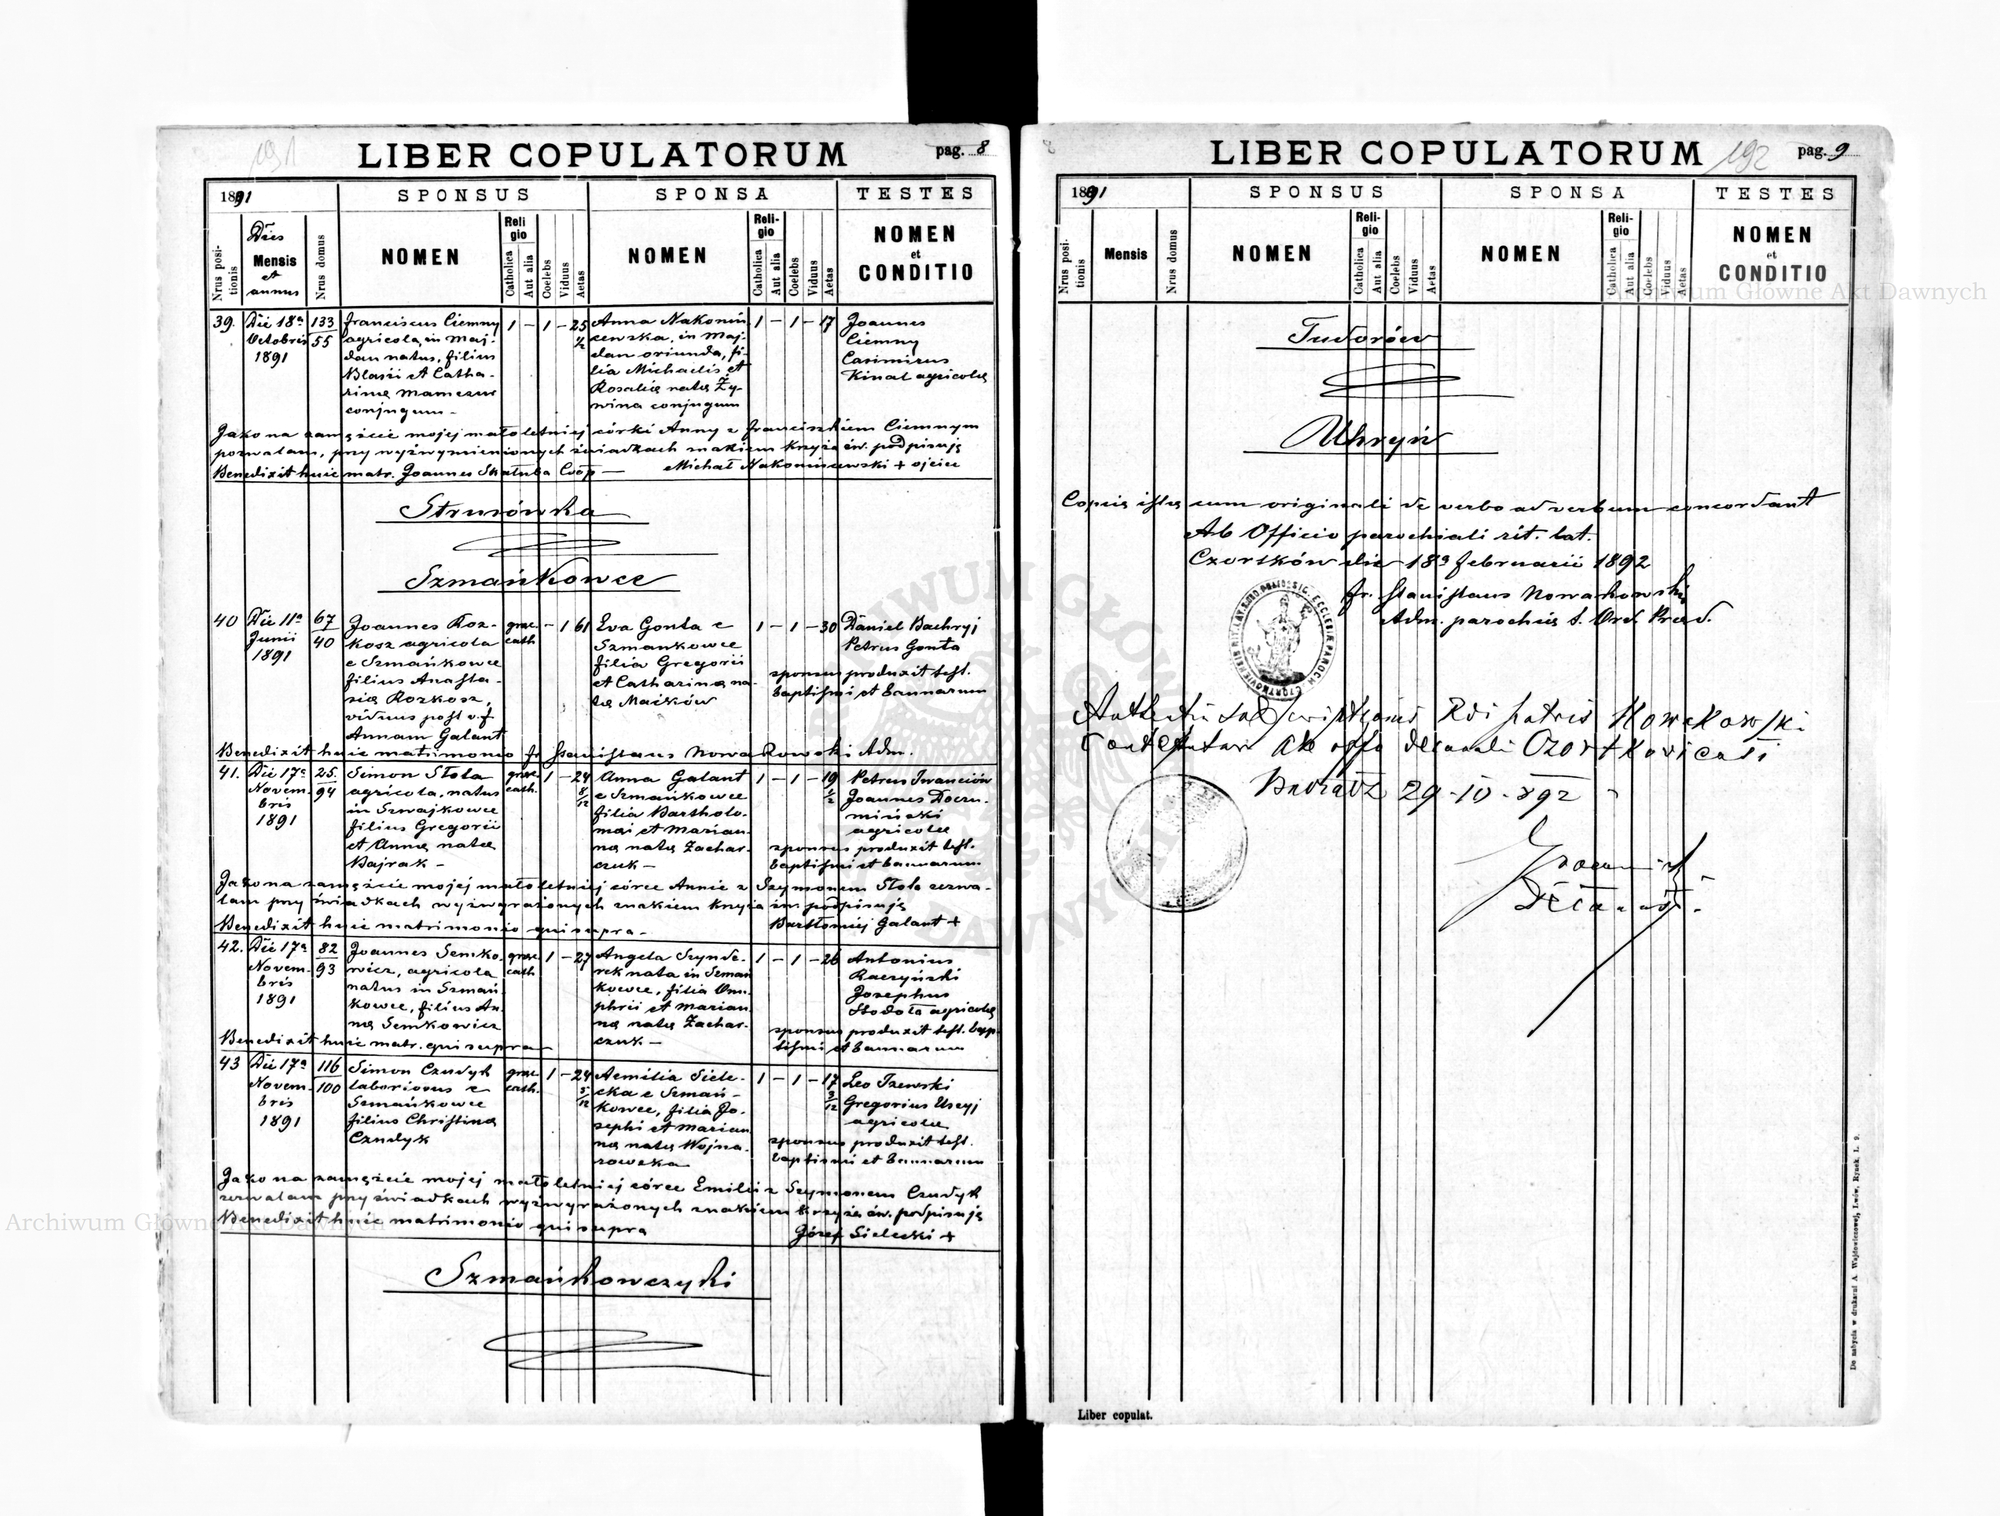 191
LIBER COPULATORUM
pag. 8
1891
SPONSUS
SPONSA
TESTES
Nrus positionis
Dies
Mensis
et
annus
Nrus domus
NOMEN
Religio
Catholica
Aut alia
Coelebs
Viduus
Aetas
NOMEN
Religio
Catholica
Aut alia
Coelebs
Viduus
Aetas
NOMEN
et
CONDITIO
39.
Die 18a
Octobris
1891
133
55
Franciscus Ciemny
agricola, in Maj-
dan natus, filius
Blasii et Catha-
rinæ Mamczur
conjugum -
1 - 1 - 25
1/2
Anna Nakonin
cewska, in Maj-
dan oriunda, fi-
lia Michaelis et
Rosaliæ natæ Ży-
wina conjugum
1 - 1 - 17
Joannes
Ciemny
Casimirus
Kinal agricolæ
Jako na zamęzcie mojej małoletniej córki Anny z Franciszkiem Ciemnym
pozwalam, przy wyżwymienionych świadkach znakiem krzyża św. podpisuję
Benedixit huic matr. Joannes Skałuba Coop - Michał Nakoniszewski + ojciec
Strusówka
Szmańkowce
40
Die 11a
Junii
1891
67
40
Joannes Roz-
kosz agricola
e Szmańkowce
filius Anasta-
siæ Rozkosz,
viduus post o. f.
Annam Galant
græc.
cath.
- 1 61
Eva Gonta e
Szmankowce
filia Gregorii
et Catharinæ na-
tæ Maćków
1 - 1 - 30
Daniel Bachryj
Petrus Gonta
sponsus produxit test.
baptismi et bannorum
Benedixit huic matrimonio fr. Stanislaus Nowakowski Adm.
41.
Die 17a
Novem
bris
1891
25
94
Simon Stola
agricola, natus
in Szwajkowce
filius Gregorii
et Annæ natæ
Bajrak -
græc.
cath.
1 - 24
8/12
Anna Galant
e Szmańkowce
filia Bartholo-
mæi et Marian-
næ natæ Zachar-
czuk -
1 - 1 - 19
1/2
Petrus Iwanciów
Joannes Doczy-
miński
agricolæ
sponsus produxit test.
baptismi et bannorum
Jako na zamęzcie mojej małoletniej córce Annie z Szymonem Stola zezwa-
lam przy świadkach wyżwyrażonych znakiem krzyża św. podpisuję
Benedixit huic matrimonio qui supra - Bartłomiej Galant +
42.
Die 17a
Novem-
bris
1891
82
93
Joannes Semko-
wicz, agricola
natus in Szmań-
kowce, filius An-
næ Semkowicz
græc.
cath.
1 - 27
Angela Szynde-
rek nata in Szman
kowce, filia Onu-
phrii et Marian-
næ natæ Zachar-
czuk -
1 - 1 - 26
Antonius
Raczyński
Josephus
Stodoła agricolæ
sponsus produxit test. bap-
tismi et bannorum
Benedixit huic matr. qui supra
43
Die 17a
Novem-
bris
1891
116
100
Simon Czudyk
laboriosus e
Szmańkowce
filius Christinæ
Czudyk
græc.
cath.
1 - 24
5/12
Aemilia Siele-
cka e Szmań-
kowce, filia Jo-
sephi et Marian
næ natæ Wojna-
rowska
1 - 1 - 17
3/12
Leo Izewski
Gregorius Uscyj
agricolæ
sponsus produxit test.
baptismi et bannorum
Jako na zamęzcie mojej małoletniej córce Emilii z Szymonem Czudyk
zezwalam przy świadkach wyżwyrażonych znakiem krzyża św. podpisuję
Benedixit huic matrimonio qui supra Józef Sielecki +
Szmańkowczyki
192
LIBER COPULATORUM
pag. 9
1891
SPONSUS
SPONSA
TESTES
Nrus positionis
Mensis
Nrus domus
NOMEN
Religio
Catholica
Aut alia
Coelebs
Viduus
Aetas
NOMEN
Religio
Catholica
Aut alia
Coelebs
Viduus
Aetas
NOMEN
et
CONDITIO
Tudorów
Uhryń
Copiæ istæ cum originali de verbo ad verbum concordant
Ab Officio parochiali rit. lat.
Czortków die 18a Februarii 1892
fr. Stanislaus Nowakowski
Adm. parochiæ S. Ord. Præd.
Rdi Patris Nowakowski
ab offo decanali Czortkoviensi
29-IV-892
Decanus
Liber copulat.
Do nabycia w drukarni A. Wajdowiczowej, Lwów, Rynek, L. 9.
Archiwum Główne Akt Dawnych
Archiwum Główne Akt Dawnych
ARCHIWUM GŁÓWNE
AKT DAWNYCH